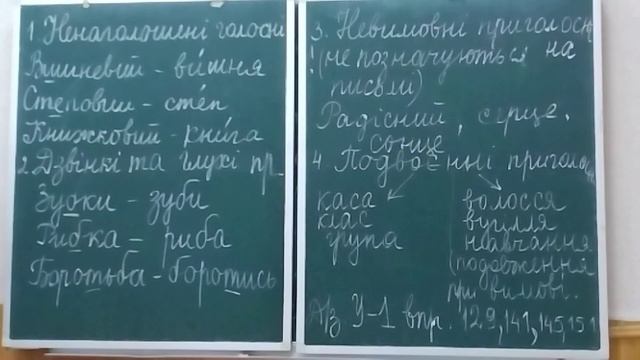 1. Ненаголошені голосні
Вишневий - ви́шня
Степовий - сте́п
Книжковий - кни́га
2. Дзвінкі та глухі пр.
Зубки - зуби
Рибка - риба
Боротьба - боротись
3. Невимовні приголосн
! (не позначуються на
письмі)
Радісний, серце,
сонце
4. Подвоєнні приголосн
каса
клас
група
волосся
вугілля
навчання
(подовження
при вимові.
Д/з У-1 впр. 129, 141, 145, 151